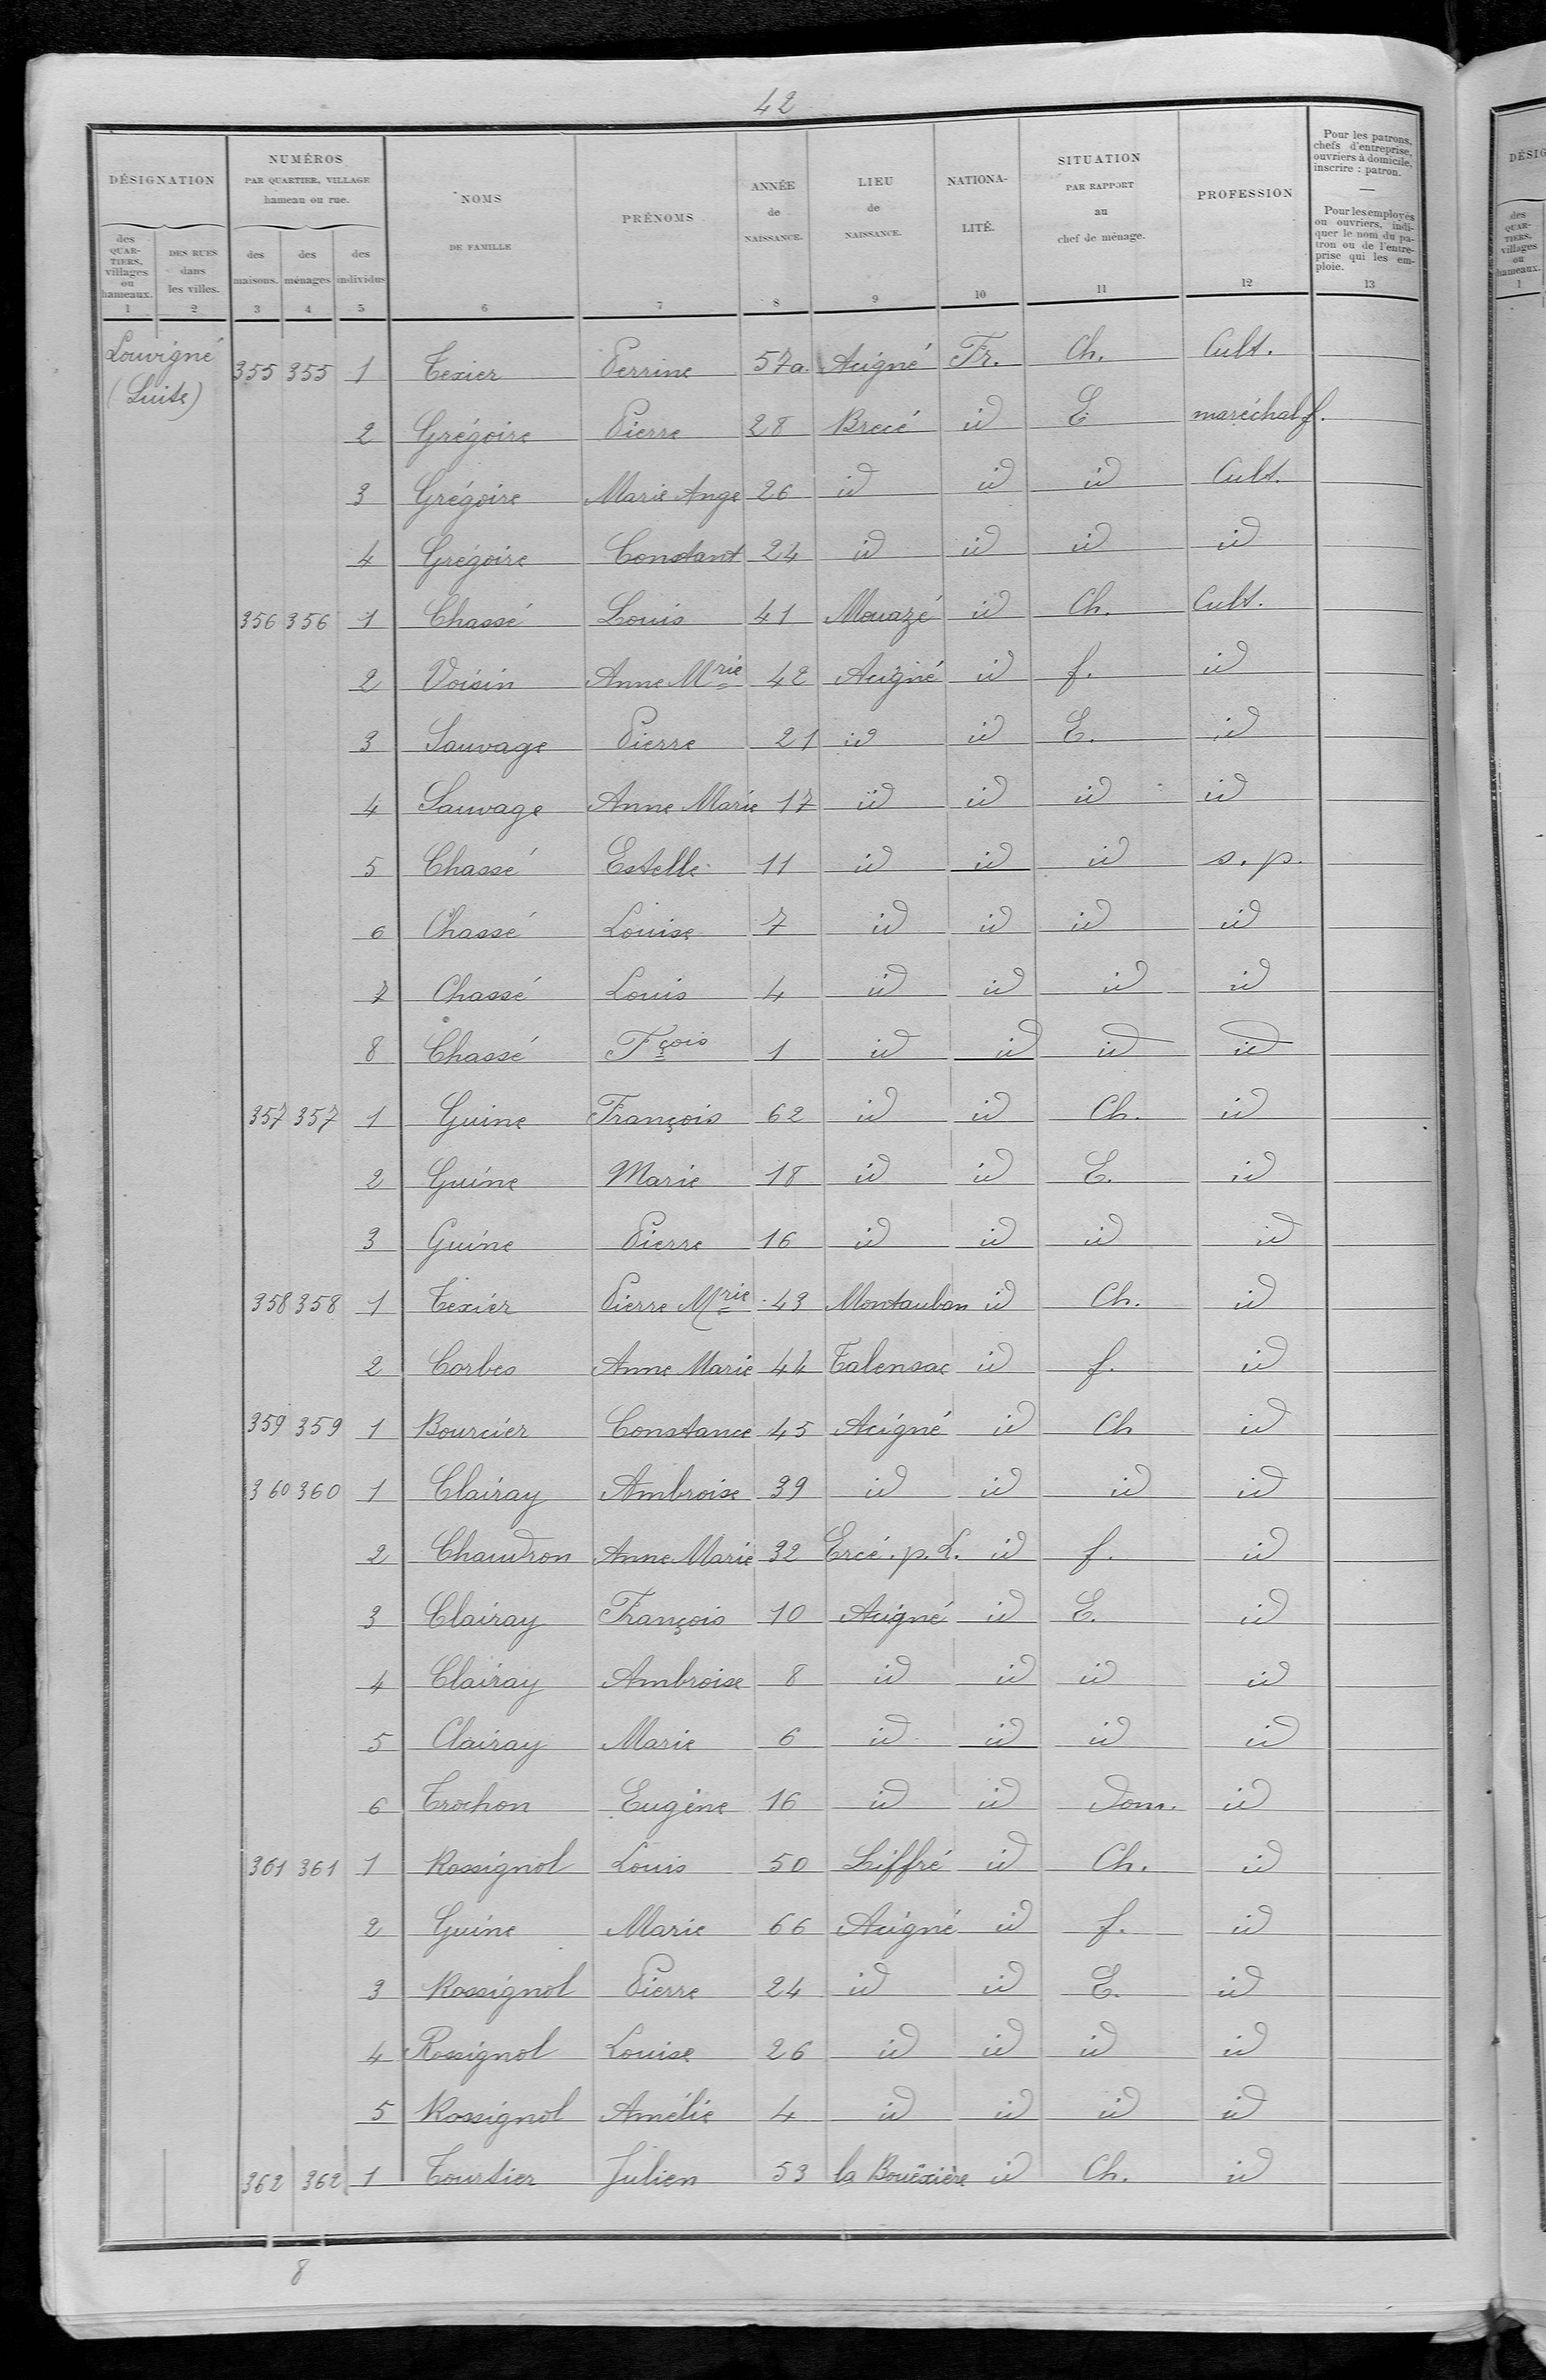 42
DÉSIGNATION | NUMÉROS PAR QUARTIER, VILLAGE hameau ou rue. | NOMS DE FAMILLE | PRÉNOMS | ANNÉE de NAISSANCE. | LIEU de NAISSANCE. | NATIONA-LITÉ. | SITUATION PAR RAPPORT au chef de ménage. | PROFESSION | Pour les patrons, chefs d'entreprise, ouvriers à domicile, inscrire : patron. — Pour les employés ou ouvriers, indiquer le nom du patron ou de l'entreprise qui les emploie.
des QUARTIERS, villages ou hameaux. | DES RUES dans les villes. | des maisons. | des ménages | des individus
1 | 2 | 3 | 4 | 5 | 6 | 7 | 8 | 9 | 10 | 11 | 12 | 13
Louvigné (Suite) 355 355 1 Texier Perrine 57 a. Acigné Fr. Ch. Cult.
2 Grégoire Pierre 28 Brecé id E. maréchal f.
3 Grégoire Marie Ange 26 id id id Cult.
4 Grégoire Constant 24 id id id id
356 356 1 Chassé Louis 41 Mouazé id Ch. Cult.
2 Voisin Anne Mrie 42 Acigné id f. id
3 Sauvage Pierre 21 id id E. id
4 Sauvage Anne Marie 17 id id id id
5 Chassé Estelle 11 id id id s. p.
6 Chassé Louise 7 id id id id
7 Chassé Louis 4 id id id id
8 Chassé Fçois 1 id id id id
357 357 1 Guine François 62 id id Ch. id
2 Guine Marie 18 id id E. id
3 Guine Pierre 16 id id id id
358 358 1 Texier Pierre Mrie 43 Montauban id Ch. id
2 Corbes Anne Marie 44 Talensac id f. id
359 359 1 Bourcier Constance 45 Acigné id Ch id
360 360 1 Clairay Ambroise 39 id id id id
2 Chaudron Anne Marie 32 Ercé. p. L. id f. id
3 Clairay François 10 Acigné id E. id
4 Clairay Ambroise 8 id id id id
5 Clairay Marie 6 id id id id
6 Trochon Eugène 16 id id dom. id
361 361 1 Rossignol Louis 50 Liffré id Ch. id
2 Guine Marie 66 Acigné id f. id
3 Rossignol Pierre 24 id id E. id
4 Rossignol Louise 26 id id id id
5 Rossignol Amélie 4 id id id id
362 362 1 Tourtier Julien 53 la Bouëxière id Ch. id
8